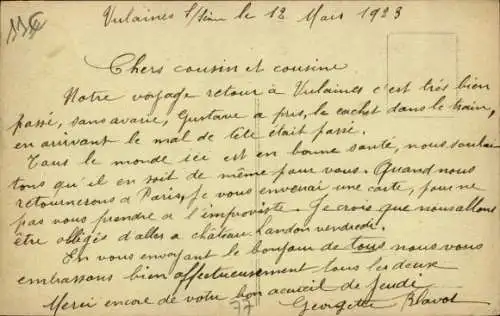 113
Vulaines s/Seine le 12 Mars 1923
Chers cousin et cousine
Notre voyage retour à Vulaines c'est très bien
passé, sans avarie, Gustave a pris le cachet dans le train,
en arrivant le mal de tête était passé.
Tous le monde ici est en bonne santé, nous souhai
tons qu'il en soit de même pour vous. Quand nous
retournerons à Paris, je vous enverai une carte, pour ne
pas vous prendre à l'improviste. Je crois que nous allons
être obligés d'aller a château Landon vendredi.
En vous envoyant le bonjour de tous nous vous
embrassons bien affectueusement tous les deux
Merci encore de votre bon accueil de Jeudi.
Georgette
77